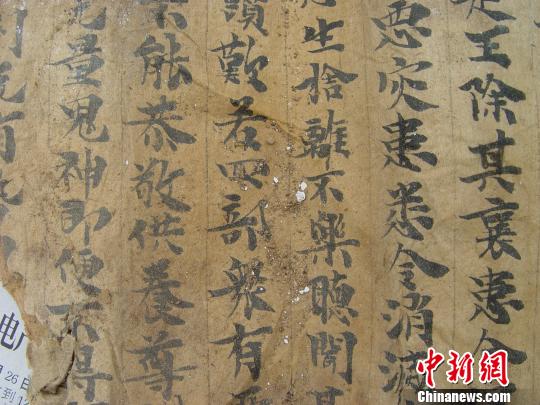 是王除其衰患令
悪灾患悉令消滅
生捨離不樂聴聞其
讃歎若四部衆有
能恭敬供養尊
量鬼神即便不得
电
26日
到12
中新网
Chinanews.com